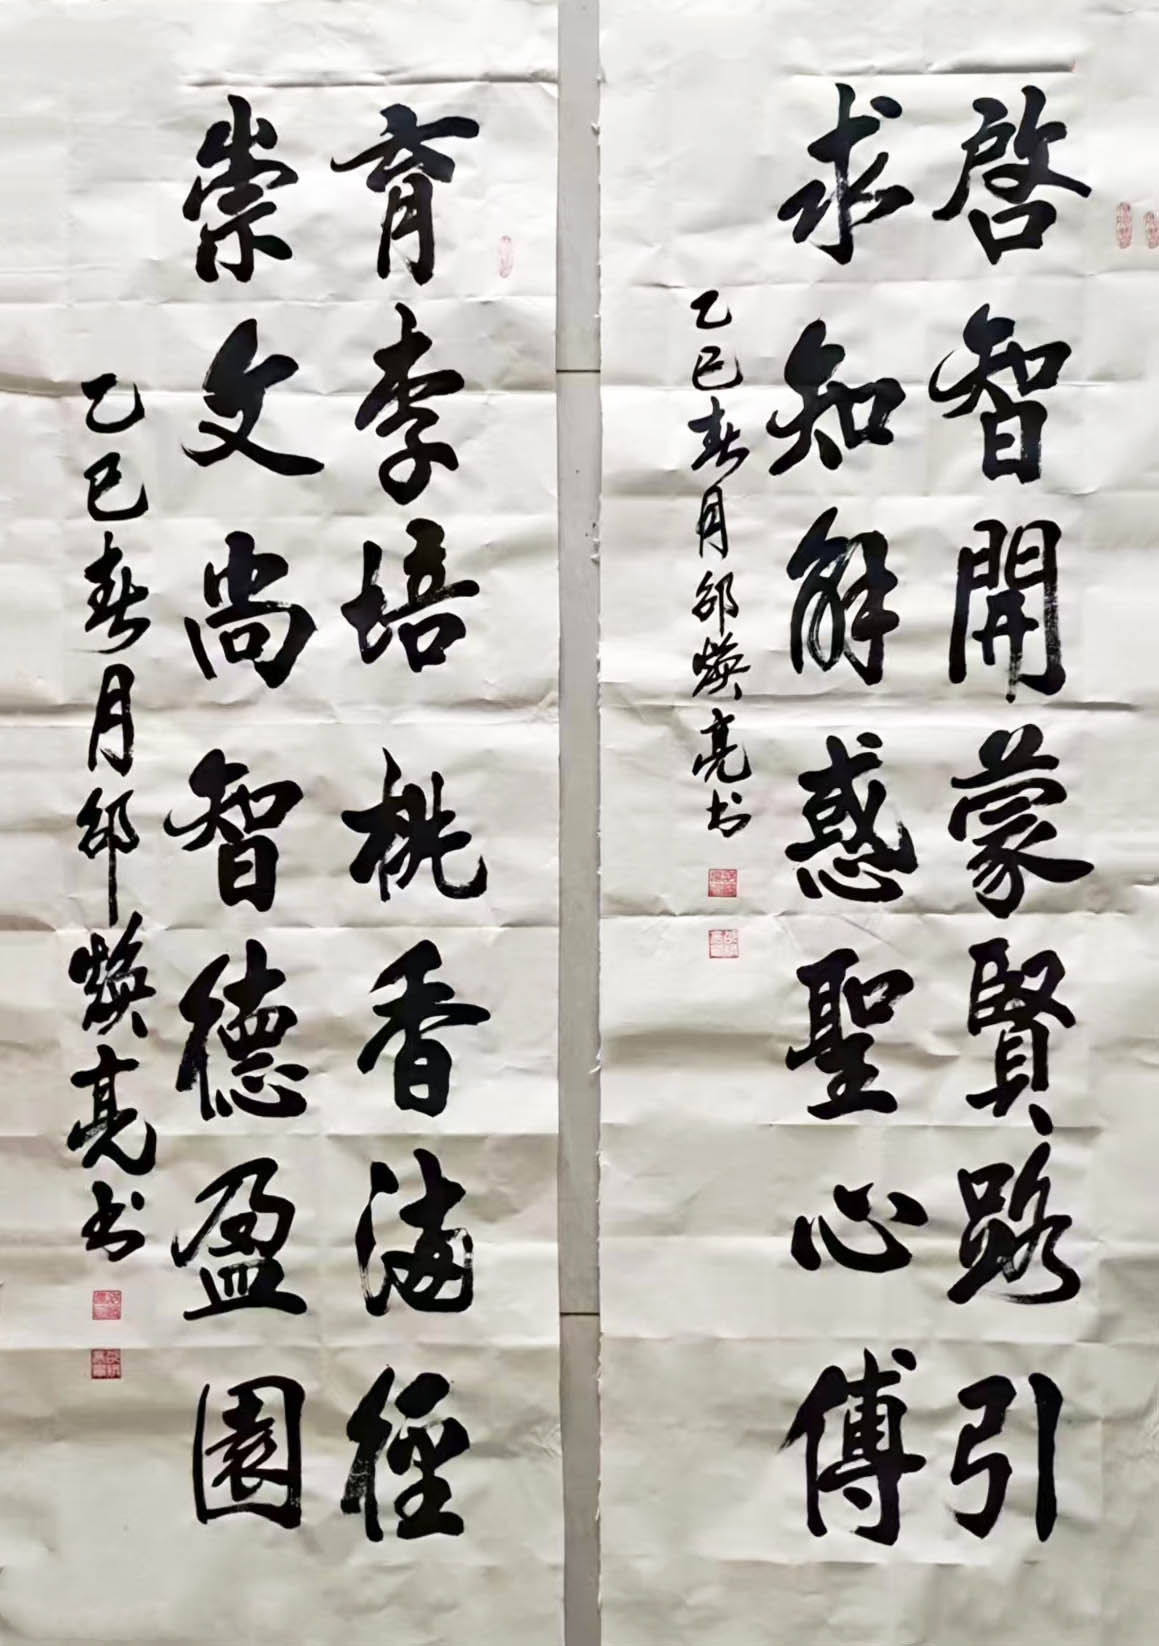 啓智開蒙賢路引
求知解惑聖心傳
乙巳春月邰煥亮书
育李培桃香满徑
崇文尚智德盈園
乙巳春月邰煥亮书